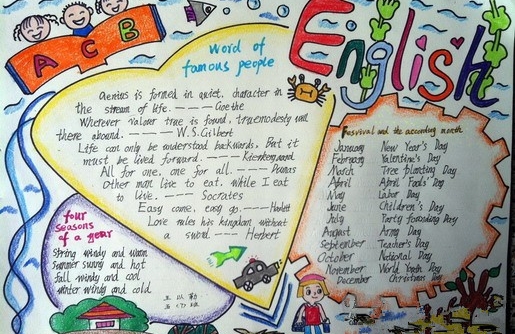 A C B
English
Word of
famous people
Genius is formed in quiet, character in
the stream of life. ———— Goethe
Wherever valour true is found, true modesty will
there abound. ———— W.S.Gilbert
Life can only be understood backwards, But it
must be lived forward. ————
All for one, one for all. ———— Dumas
Other man live to eat, while I eat
to live. ———— Socrates
Easy come, easy go. ————
Love rules his kingdom without
a sword ———— Herbert
four
seasons
of a year
Spring windy and warm
Summer sunny and hot
fall windy and cool
winter windy and cold
王以勒
and the according month
January New Year's Day
February Valentine's Day
March Tree planting Day
April April Fools' Day
May Labor Day
June Children's Day
July Party Day
August Army Day
September Teacher's Day
October National Day
November World Youth Day
December Day